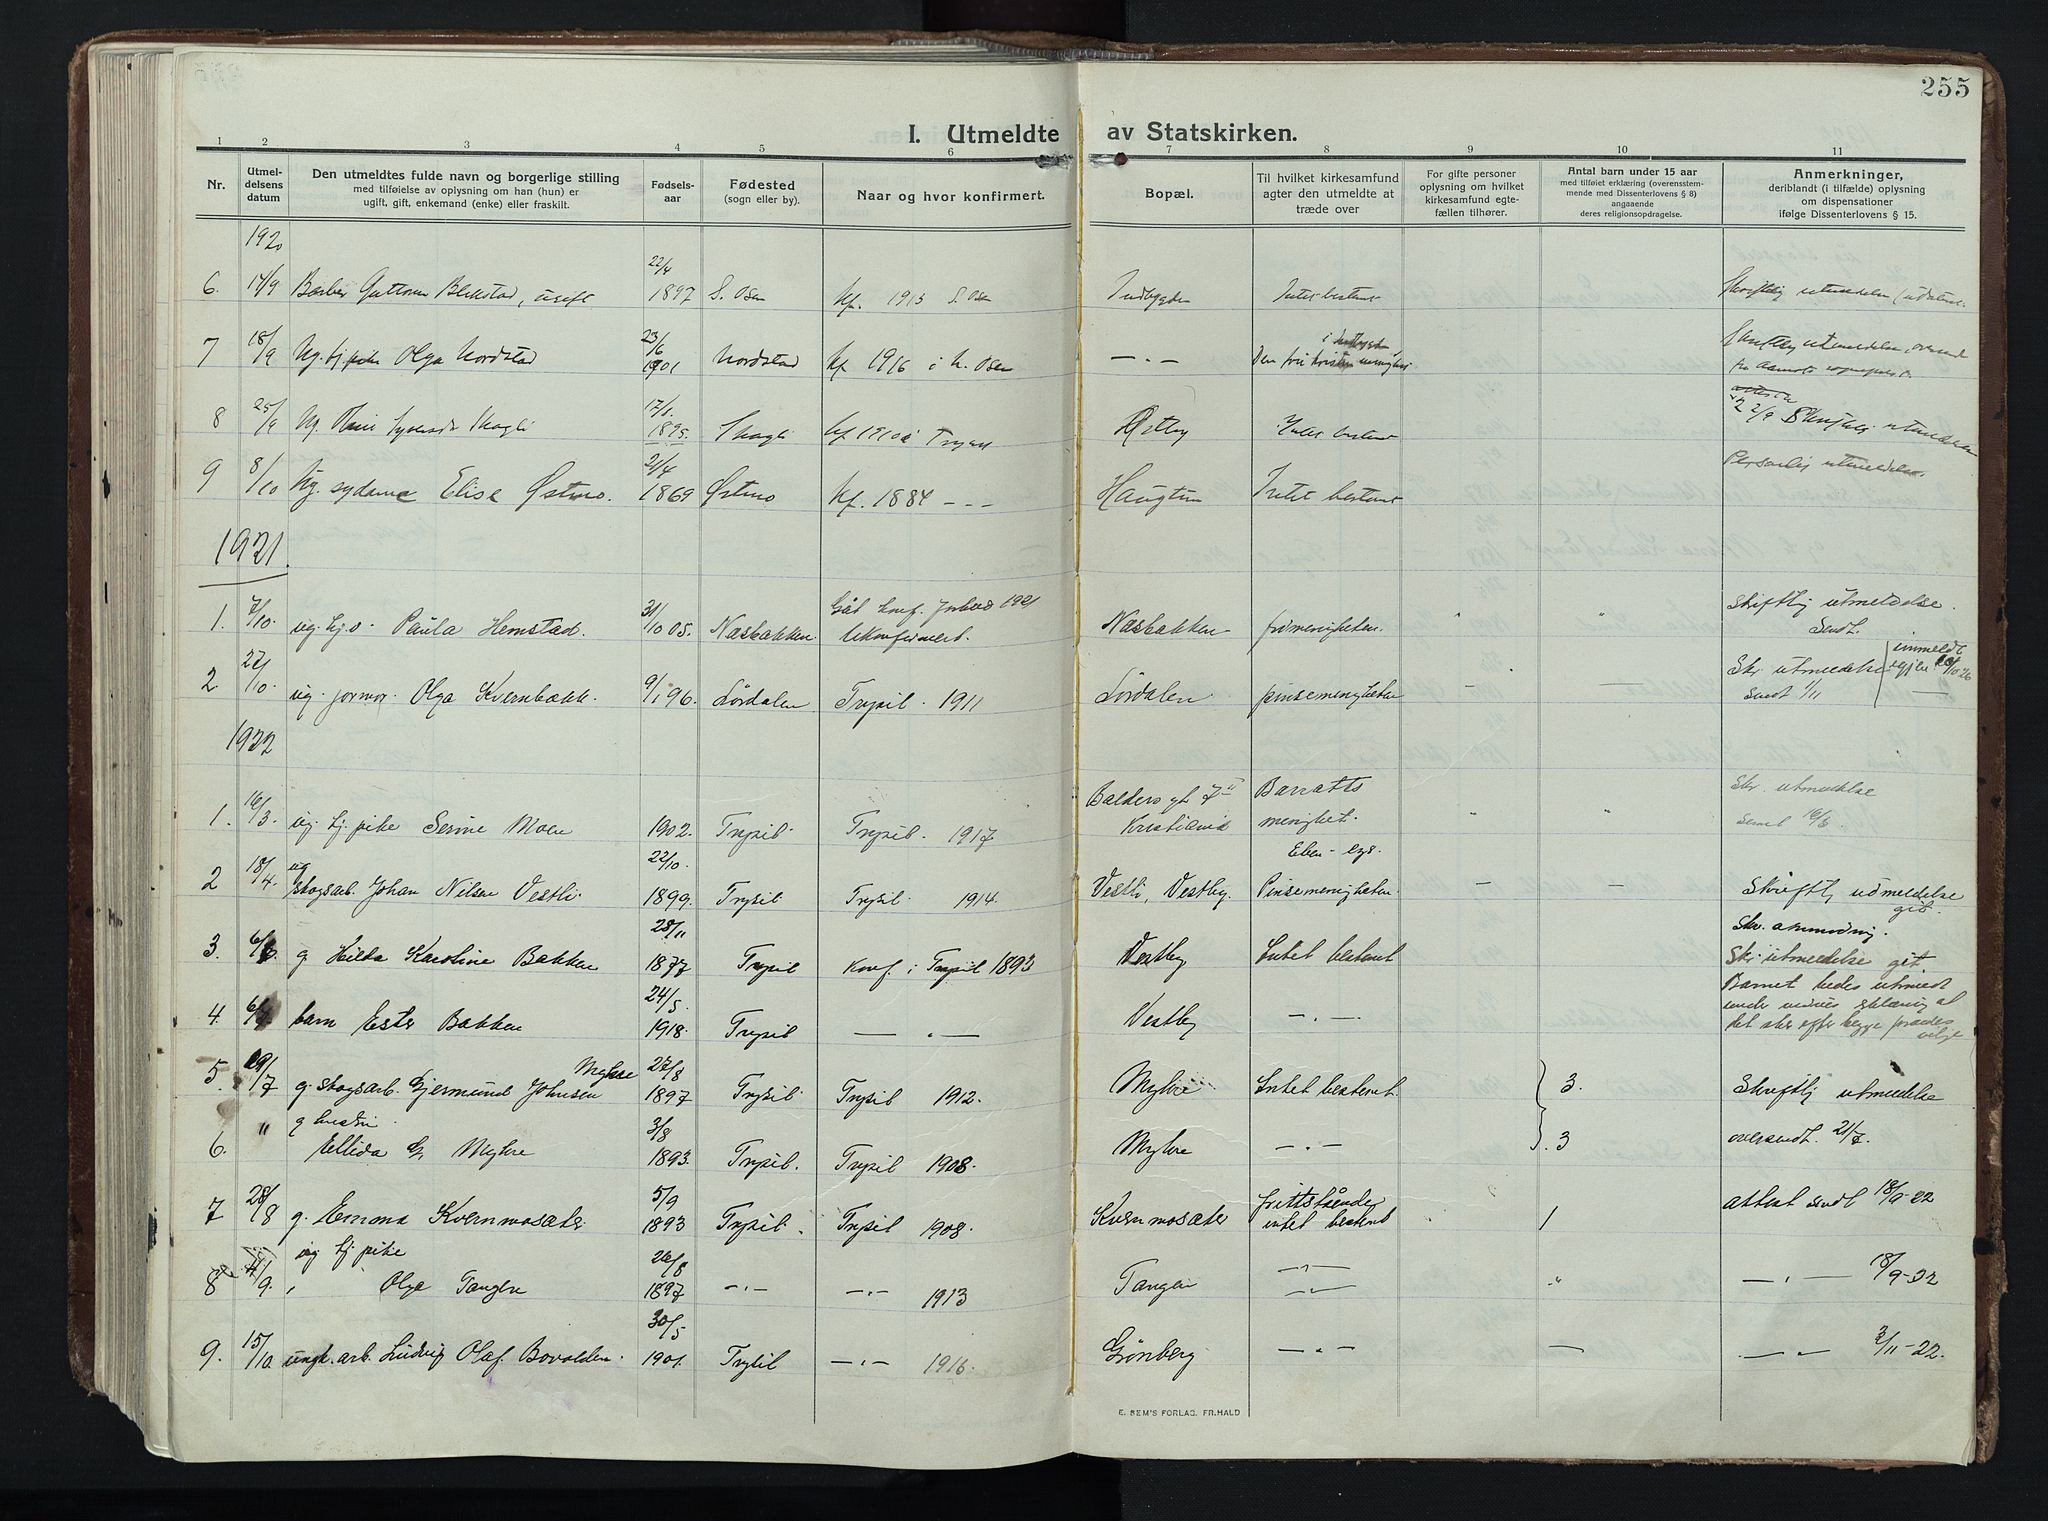 255
I. Utmeldte av Statskirken.
1 2 3 4 5 6 7 8 9 10 11
Nr.
Utmel-
delsens
datum
Den utmeldtes fulde navn og borgerlige stilling
med tilføielse av oplysning om han (hun) er
ugift, gift, enkemand (enke) eller fraskilt.
Fødsels-
aar
Fødested
(sogn eller by).
Naar og hvor konfirmert.
Bopæl.
Til hvilket kirkesamfund
agter den utmeldte at
træde over
For gifte personer
oplysning om hvilket
kirkesamfund egte-
fællen tilhører.
Antal barn under 15 aar
med tilføiet erklæring (overensstem-
mende med Dissenterlovens § 8)
angaaende
deres religionsopdragelse.
Anmerkninger,
deriblandt (i tilfælde) oplysning
om dispensationer
ifølge Dissenterlovens § 15.
1920 22/4
6. 17/9 Guttorm Blekstad, ugift 1897 S. Osen kf. 1913 S. Osen Indbygden Intet bestemt Skriftlig utmeldelse
7 18/9 Ug. tj. pike Olga Nordstad 23/6 1901 Nordstad kf 1916 i N. Osen — " — Den frie kristne menighet Skriftlig utmeldelse
8 25/9 Ug. Skogli 17/1 1895. Skogli kf 1910 i Trysil Østby Intet bestemt 22/9 Skriftlig utmeldelse
9 8/10 Ug. sydame Elise Østmo. 21/4 1869 Østmo kf. 1884 – – – Haugtun Intet bestemt Personlig utmeldelse.
1921.
1. 7/10. ug. Paula Hemstad. 31/10 05. Næsbakken Ukonfirmert. Næsbakken frimenigheten. " " Skriftlig utmeldelse.
Sendt.
2 27/10. ug. Olga Kvernbakk. 9/1 96. Lördalen Trysil. 1911 Lördalen pinsemenigheten – — Skr. utmeldelse
sendt 1/11 innmeldt igjen
1922
1. 16/3. ug. tj. pike Serine Moen 1902. Trysil. Trysil. 1917 Balders gt 7 II
Kristiania Barratts
menighet.
Eben-ezr. " " Skr. utmeldelse
sendt 16/3.
2 18/4. ug skogsarb. Johan Nilsen Vestli. 22/10. 1899. Trysil Trysil. 1914. Vestli, Vestby. Pinsemenigheten. – – Skriftlij udmeldelse
git.
3. g. Hilda Karoline Bakken 28/11 1877 Trysil Konf. i Trysil 1893 Vestby Intet bestemt Skr. anmodning.
Skr. utmeldelse git
4. barn Ester Bakken 24/5 1918. Trysil — . — Vestby — . — Barnet bedes utmeldt
det sker efter begge forældres
vilje
5. 19/7 g. skogsarb. Gjermund Johnsen Myhre 27/8 1897 Trysil Trysil 1912. Myhre Intet bestemt. 3. Skriftlij utmeldelse
6. " g hustru
Ellida G. Myhre 3/8 1893. Trysil. Trysil 1908. Myhre — . — 3 oversendt. 21/7.
7 28/8 g. Emona Kvernmosæter. 5/9 1893 Trysil. Trysil 1908. Kvernmosæter frittstående
intet bestemt 1 attest sendt 18/9-22
8 9. ug tj pike
Olga Tangen 26/8 1897 – . – – . – 1913 Tangen — " — — . — 18/9-22
9. 15/10 ungk. arb. Ludvig Olaf Bovolden. 30/5 1901. Trysil – . – 1916. Grönberg – . – — — . — 2/11-22.
E. SEM'S FORLAG. FR.HALD